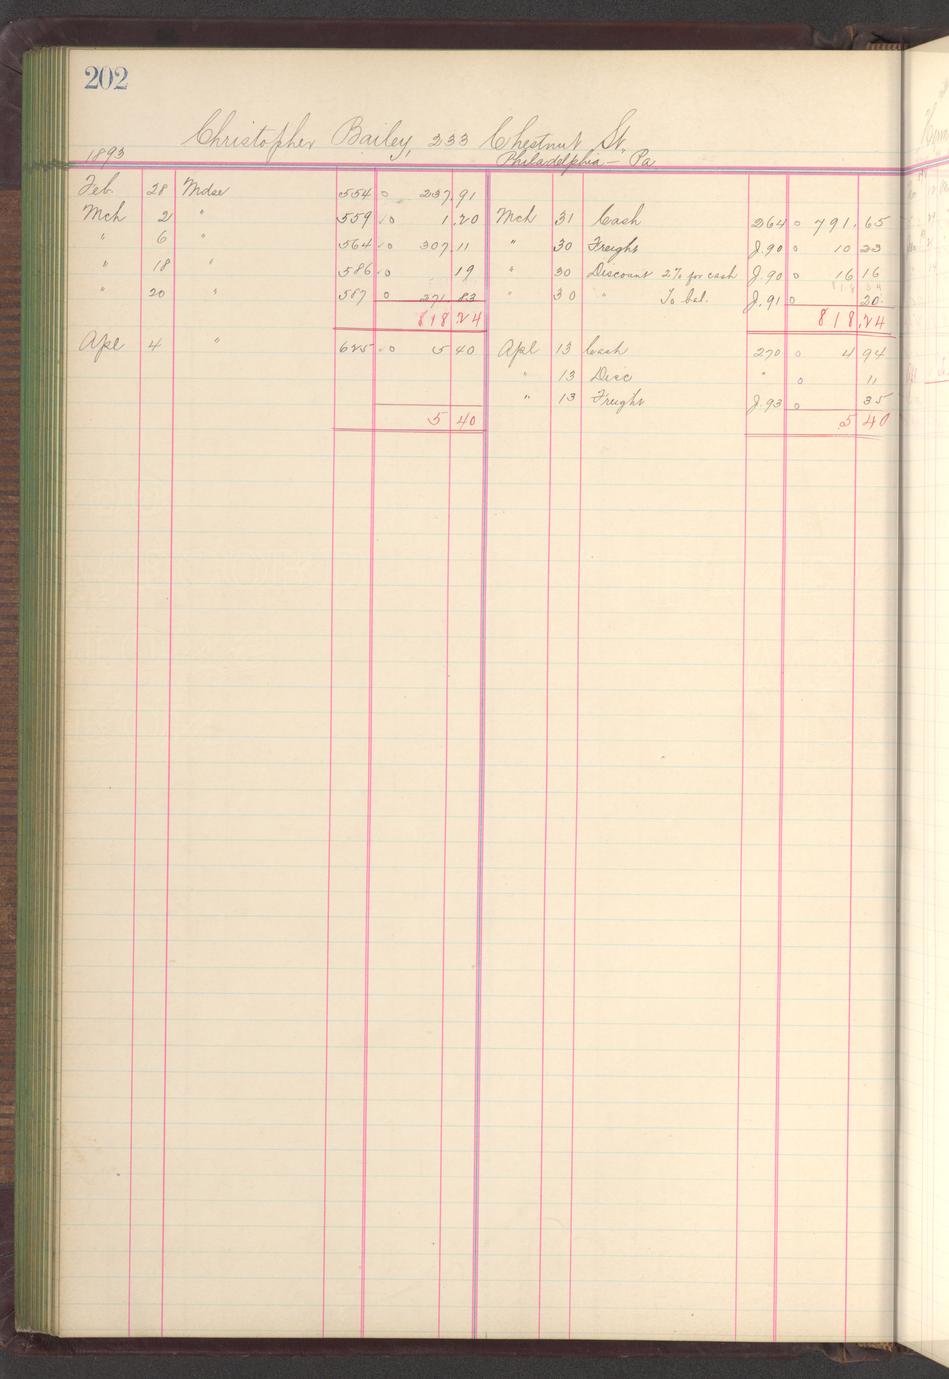 202
Christopher Bailey, 233 Chestnut St.
1893 Philadelphia – Pa
Feb. 28 Mdse 554 o 237.91
Mch 2 " 559 o 1.20 Mch 31 Cash 264 o 791.65
" 6 " 564 o 307.11 " 30 Freight J.90 o 10 23
" 18 " 586 o 19 " 30 Discount 2% for cash J.90 o 16 16
" 20 " 587 o 271 83 " 30 " To bal. J.91 o 20
818.24 818.24
Apl 4 " 625 o 5 40 Apl 13 Cash 270 o 4 94
" 13 Disc " o 11
" 13 Freight J.93 o 35
5 40 5 40